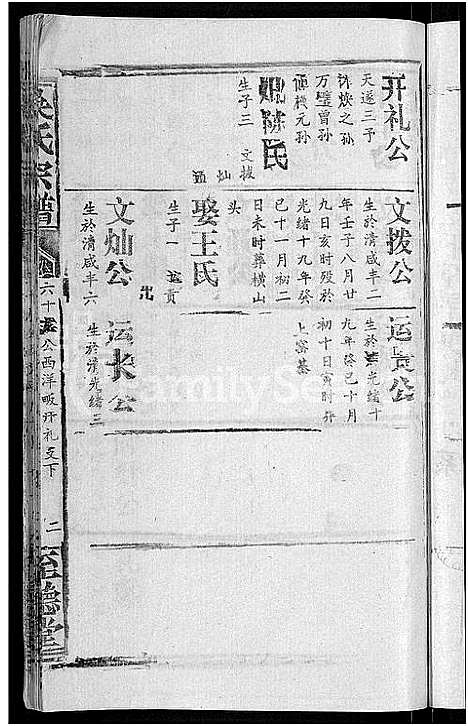 开礼公
天遂三予
洪焕之孙
万璧曾孙
便機元孙
妣陈氏
生子三 文拔
灿
文拨公
生於清咸丰二
年壬子八月廿
九日亥时殁於
光绪十九年癸
巳十一月初二
日未时葬横山
头
娶王氏
生子一 运贡
文灿公
生於清咸丰六
运贡公
生於清光绪十
九年癸巳十月
初十日寅时卒
上窑墓
运长公
生於清光绪三
吴氏宗谱
六十
公西洋畈开礼支下
二
至德堂